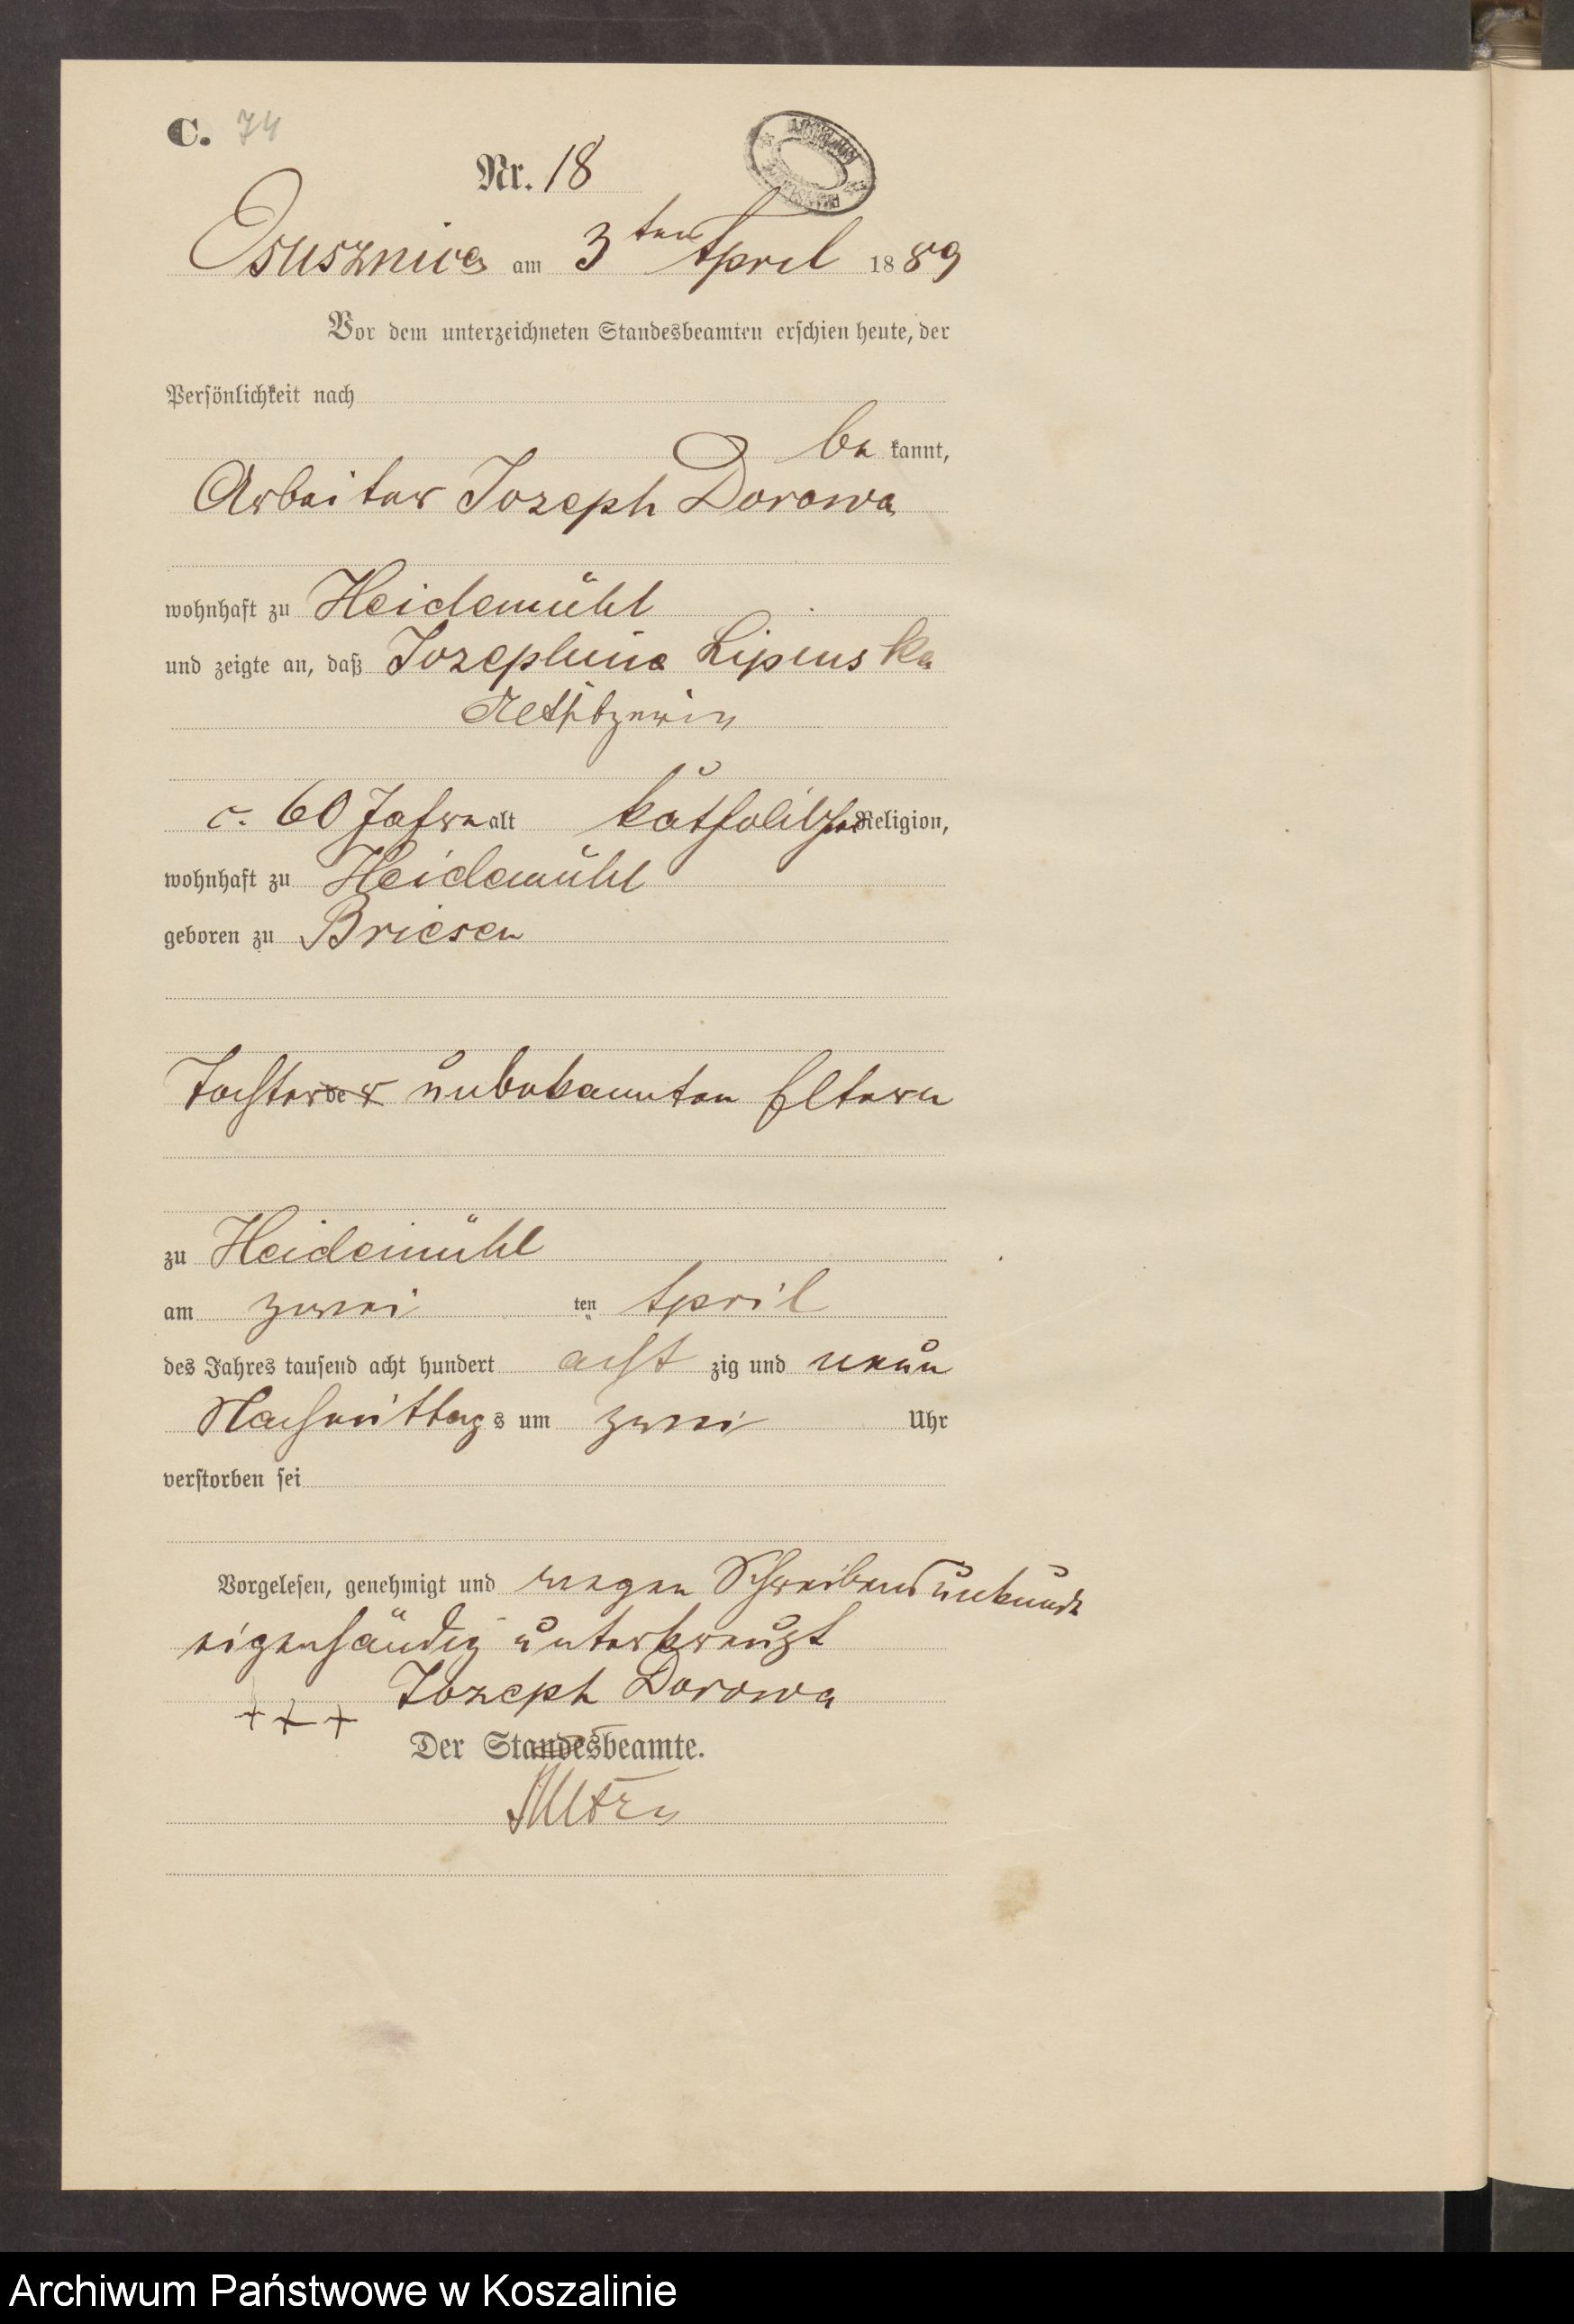 C. 74
Nr. 18
Osusznica am 3ten April 1889
Vor dem unterzeichneten Standesbeamten erschien heute, der
Persönlichkeit nach
be kannt,
Arbeiter Jozeph Dorowa
wohnhaft zu Heidemühl
und zeigte an, daß Jozephina Lipinska
c. 60 Jahre alt katholischer Religion,
wohnhaft zu Heidemühl
geboren zu Briesen
Tochter der unbekannten Eltern
zu Heidemühl
am zwei ten April
des Jahres tausend acht hundert acht zig und neun
Nachmittags um zwei Uhr
verstorben sei
Vorgelesen, genehmigt und wegen Schreibensunkunde
eigenhändig unterkreuzt
+++ Jozeph Dorowa
Der Standesbeamte.
Archiwum Państwowe w Koszalinie